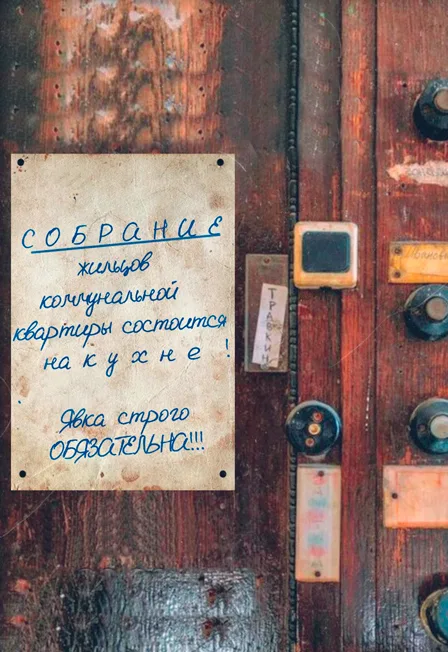 СОБРАНИЕ
жильцов
коммунальной
квартиры состоится
на кухне!
Явка строго
ОБЯЗАТЕЛЬНА!!!
ТРАВКИН